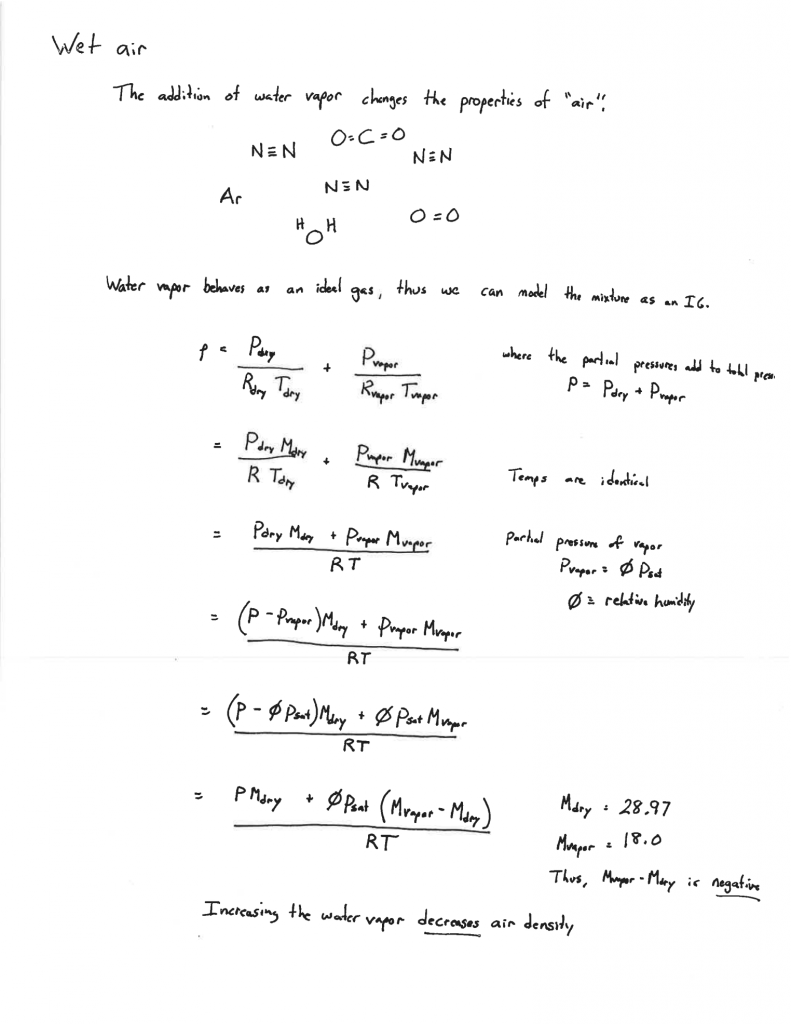 Wet air
The addition of water vapor changes the properties of "air".
N≡N O=C=O N≡N
Ar N≡N O=O
H O H
Water vapor behaves as an ideal gas, thus we can model the mixture as an IG.
ρ = P_dry / (R_dry T_dry) + P_vapor / (R_vapor T_vapor)
where the partial pressures add to total pres.
P = P_dry + P_vapor
= P_dry M_dry / (R T_dry) + P_vapor M_vapor / (R T_vapor)
Temps are identical
= (P_dry M_dry + P_vapor M_vapor) / RT
Partial pressure of vapor
P_vapor = Ø P_sat
Ø ≡ relative humidity
= ((P - P_vapor) M_dry + P_vapor M_vapor) / RT
= ((P - Ø P_sat) M_dry + Ø P_sat M_vapor) / RT
= (P M_dry + Ø P_sat (M_vapor - M_dry)) / RT
M_dry = 28.97
M_vapor = 18.0
Thus, M_vapor - M_dry is negative
Increasing the water vapor decreases air density